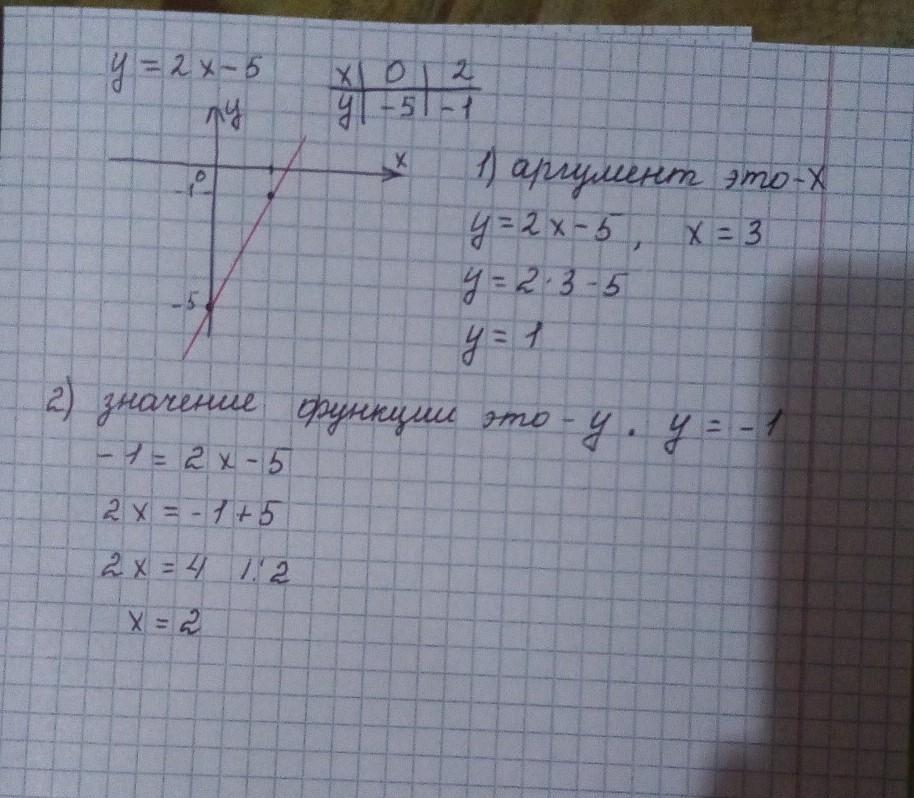 y = 2x - 5
x | 0 | 2
y | -5 | -1
y
x
0
-1
-5
1) аргумент это - x
y = 2x - 5 , x = 3
y = 2 · 3 - 5
y = 1
2) значение функции это - y . y = -1
-1 = 2x - 5
2x = -1 + 5
2x = 4 |: 2
x = 2